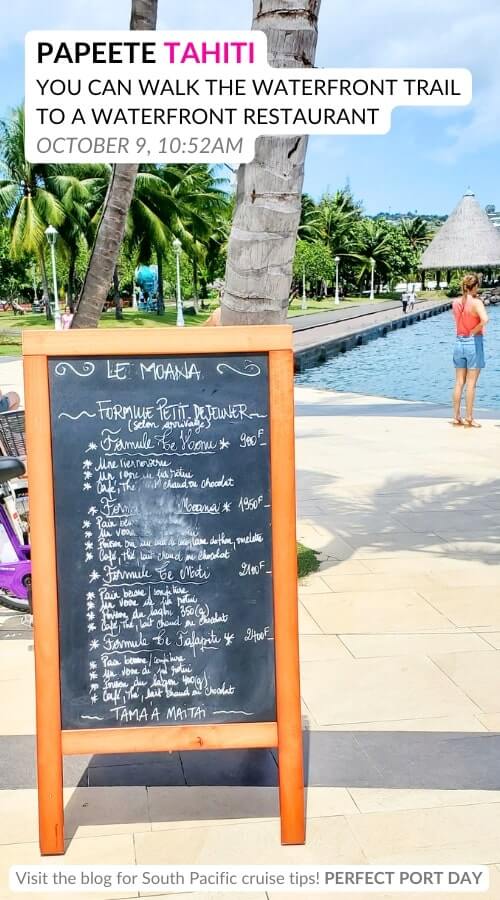 PAPEETE TAHITI
YOU CAN WALK THE WATERFRONT TRAIL
TO A WATERFRONT RESTAURANT
OCTOBER 9, 10:52AM
LE MOANA
FORMULE PETIT DEJEUNER
(selon arrivage)
* Formule Te * 980F
* Une viennoiserie
* Un verre de jus
* Café, Thé, chaud ou chocolat
* Moana * 1950F
* Pain
* Un
* omelette
* Café, thé, lait chaud ou chocolat
* Formule Te 2100F
* Pain beurre/confiture
* Un verre de jus
* Poisson du lagon 350(g)
* Café, Thé, lait chaud ou chocolat
* Formule Te * 2400F
* Pain beurre/confiture
* Un verre de jus
* Poisson du lagon 400(g)
* Café, Thé, lait chaud ou chocolat
TAMA'A MAITAI
Visit the blog for South Pacific cruise tips! PERFECT PORT DAY